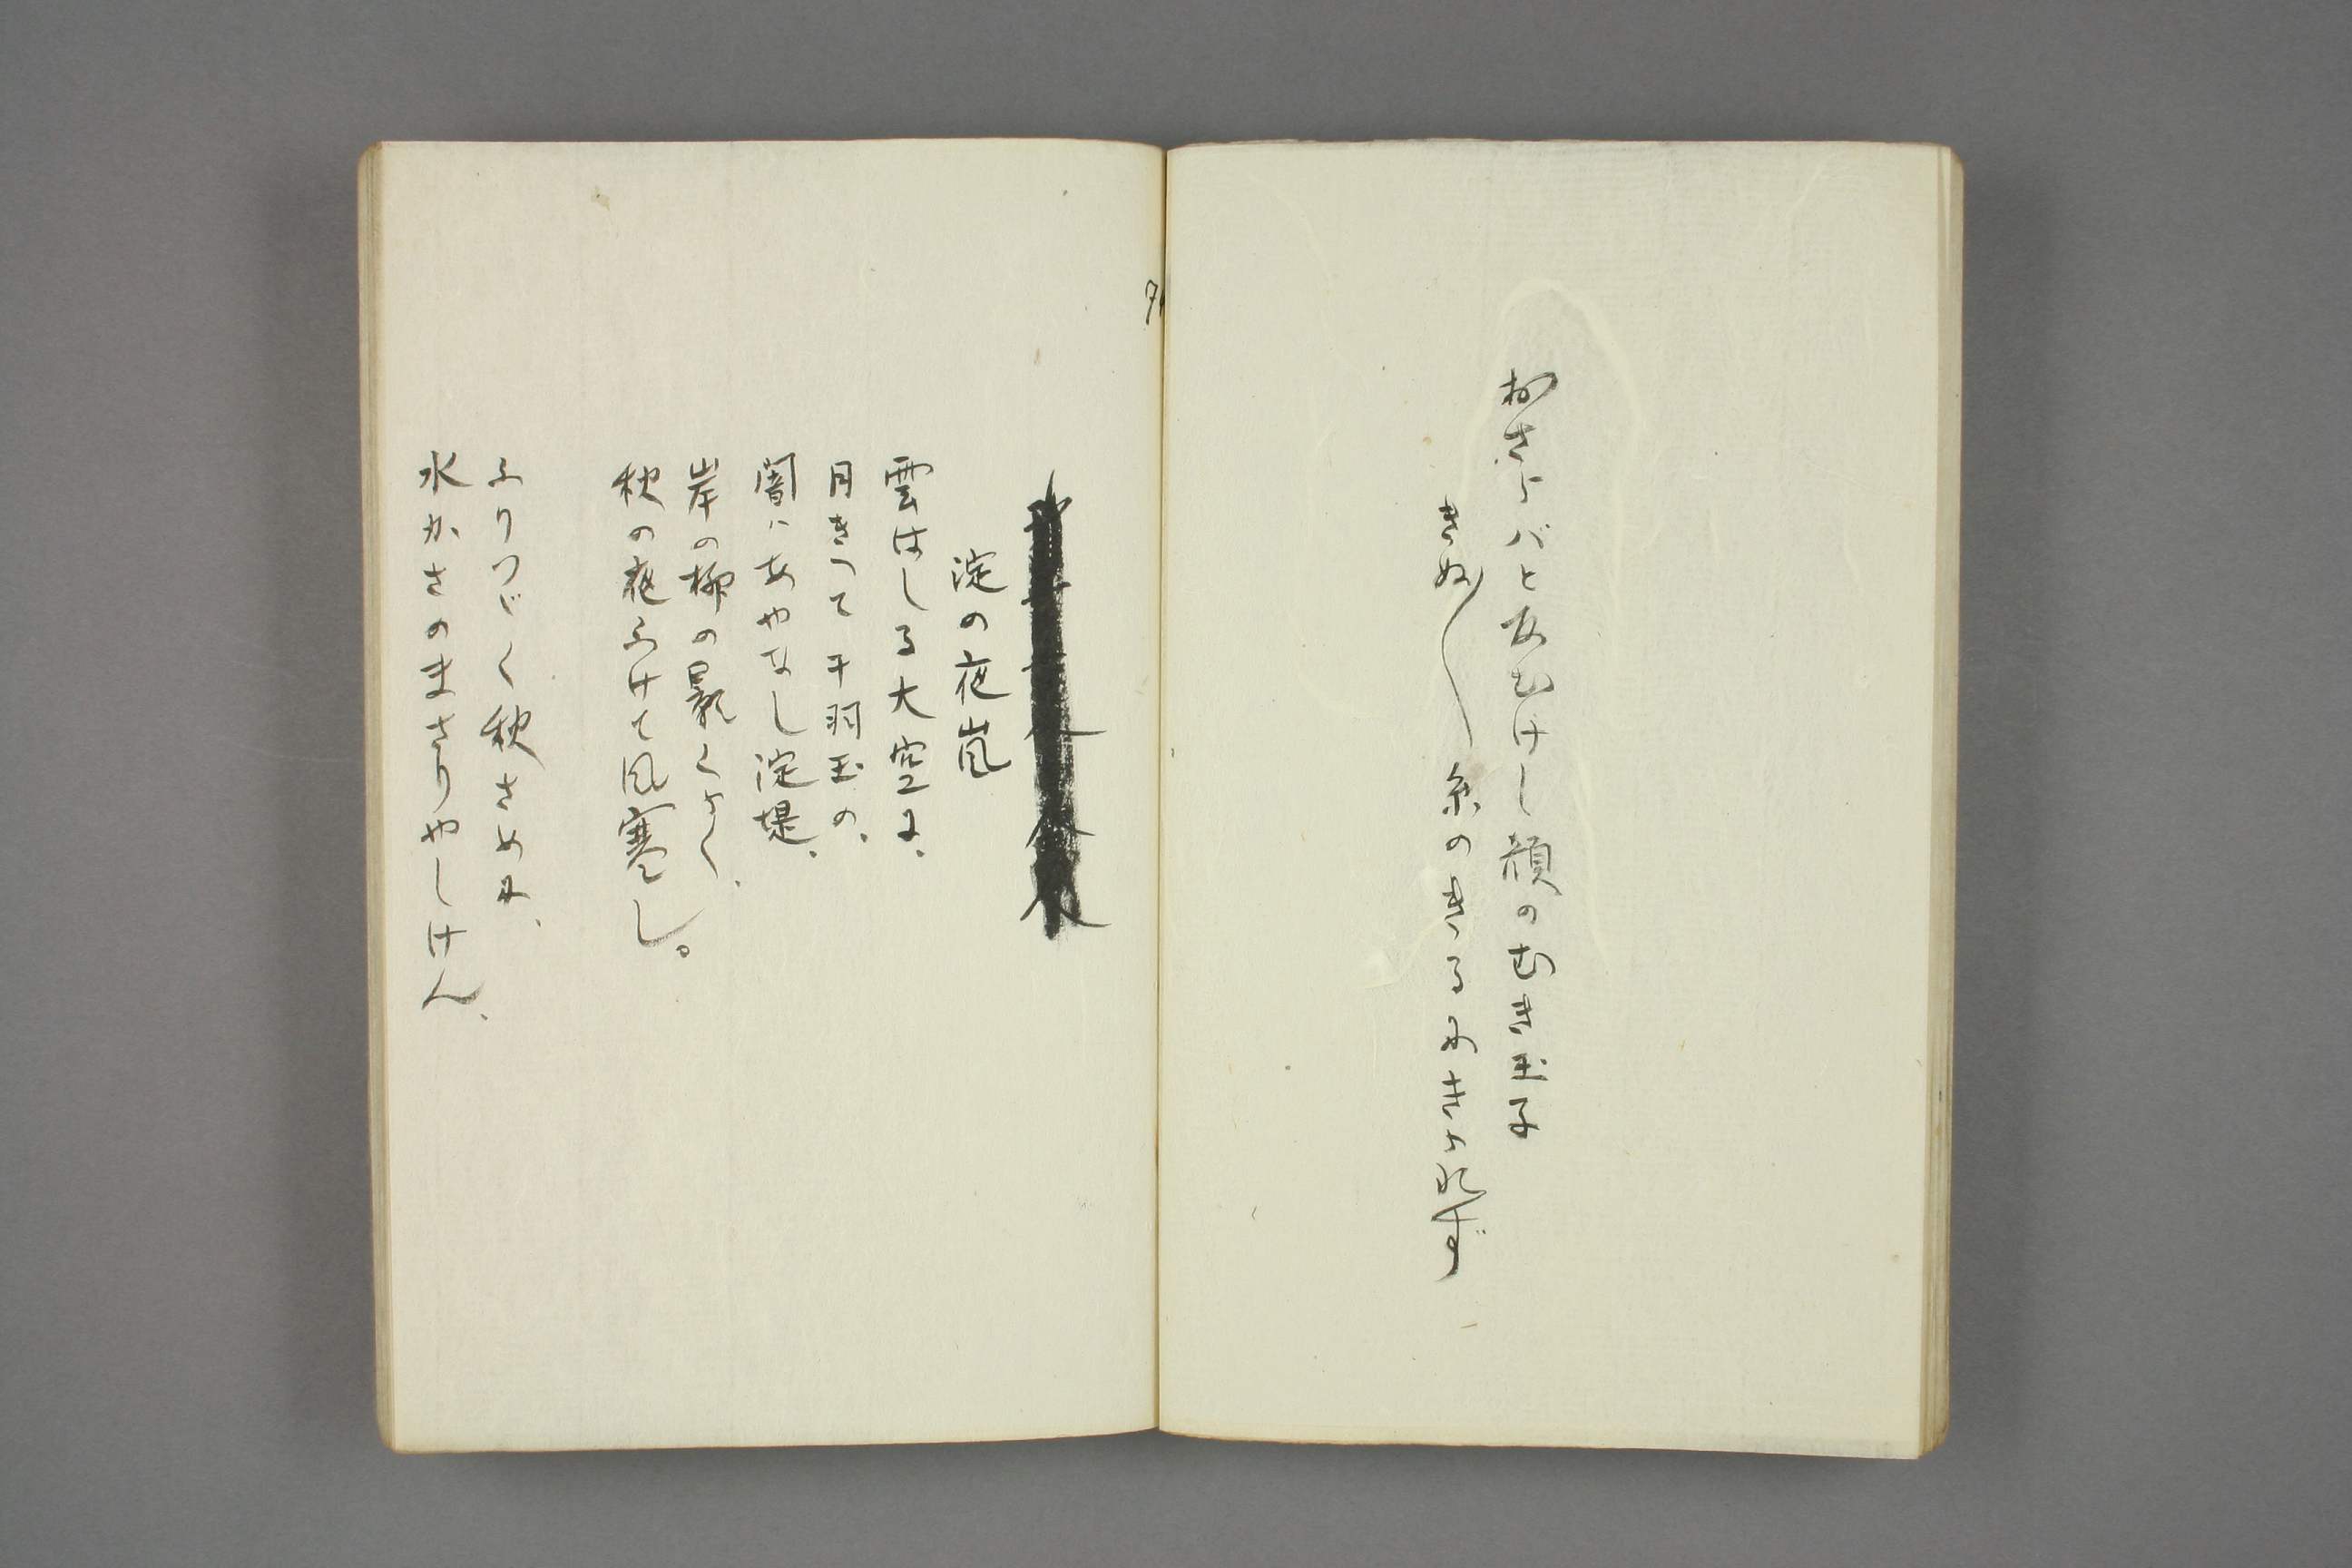 おさらバとあむけし顔のむき玉子
きぬ〳〵糸のきるゝにきられず
淀の夜嵐
雲はしる大空に、
月きえて干羽玉の、
闇にあやなし淀堤、
岸の柳の影くらく、
秋の夜ふけて風寒し。
ふりつゞく秋さめに、
水かさのまさりやしけん、